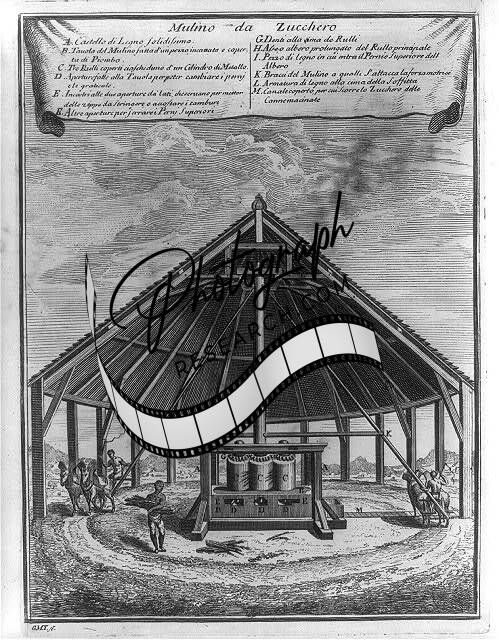 Mulino da Zucchero
A. Castello di Legno solidissimo.
B. Tavola del Mulino fatta d'un pezzo incavata e coper
ta di Piombo.
C. Tre Rulli coperti ciascheduno d'un Cilindro di Metallo.
D. Aperture fatte alla Tavola per poter cambiare i perni
e le graticole.
E. Incastri alle due aperture da lati, che servono per metter
delle zeppe da stringere e
E. Altre aperture per serrare i Perni Superiori.
G. Denti alla cima de Rulli
H. Asso albero prolungato del Rullo principale
I. Pezzo di legno in cui entra il Pernio Superiore dell
Albero
K. Bracci del Mulino a quali s'attacca la forza motrice
L. Armatura di legno alla cima della Soffitta
M. Canale coperto per cui scorre lo Zucchero delle
Cannemacinate
Photograph
RESEARCH.COM
K
A
C C C
E D D D E
M
G.M.T. f.